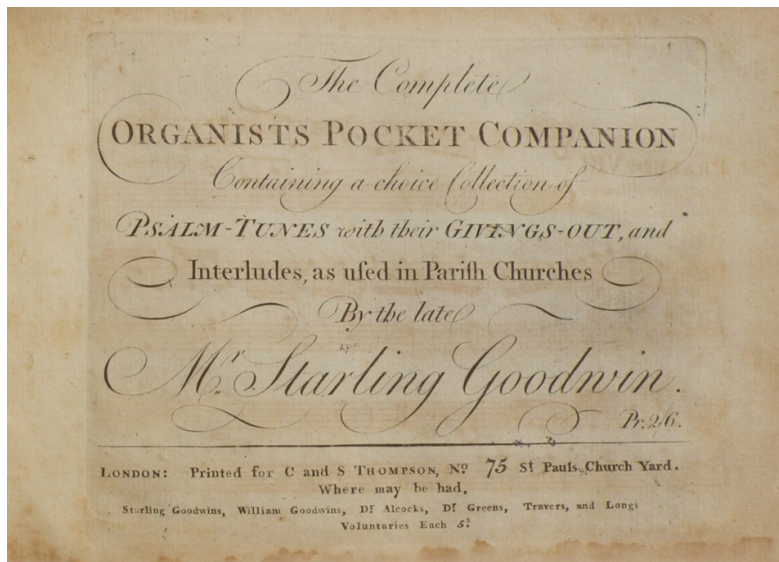 1
The Complete
ORGANISTS POCKET COMPANION
Containing a choice Collection of
PSALM-TUNES with their GIVINGS-OUT, and
Interludes, as uſed in Pariſh Churches
By the late
Mr. Starling Goodwin.
Pr. 2/6.
LONDON: Printed for C and S THOMPSON, No. 75 St. Pauls Church Yard.
Where may be had,
Starling Goodwins, William Goodwins, Dr. Alcocks, Dr. Greens, Travers, and Longs
Voluntaries Each 5s.